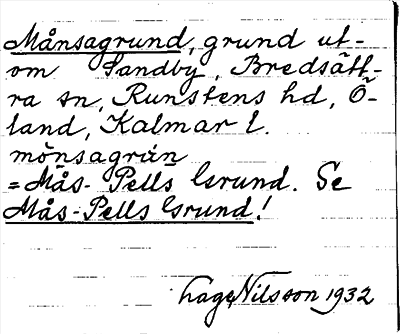 Månsagrund, grund ut-
om Sandby, Bredsätt-
ra sn, Runstens hd, Ö-
land, Kalmar l.
mönsagrún
= Mås-Pells Grund. Se
Mås-Pells Grund!
Hage Nilsson 1932